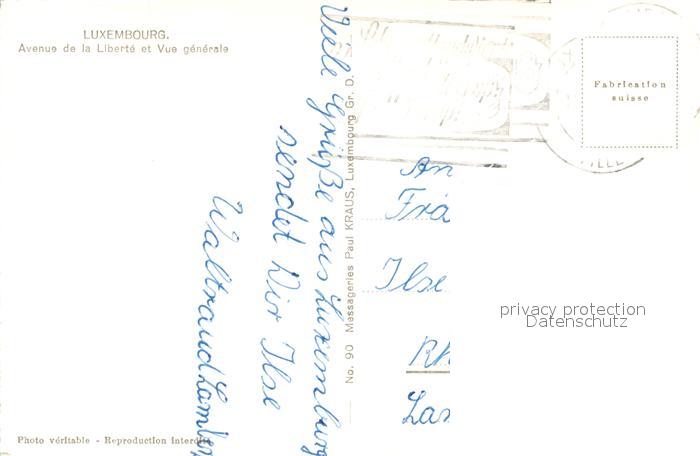 LUXEMBOURG.
Avenue de la Liberté et Vue générale
Viele Grüße aus Luxemburg
sendet Dir Ilse
Waltraud Lambert
No. 90 Messageries Paul KRAUS, Luxembourg Gr. D.
Fabrication
suisse
VILLE
An
Frä
Ilse
Rh
Las
privacy protection
Datenschutz
Photo véritable - Reproduction interdite